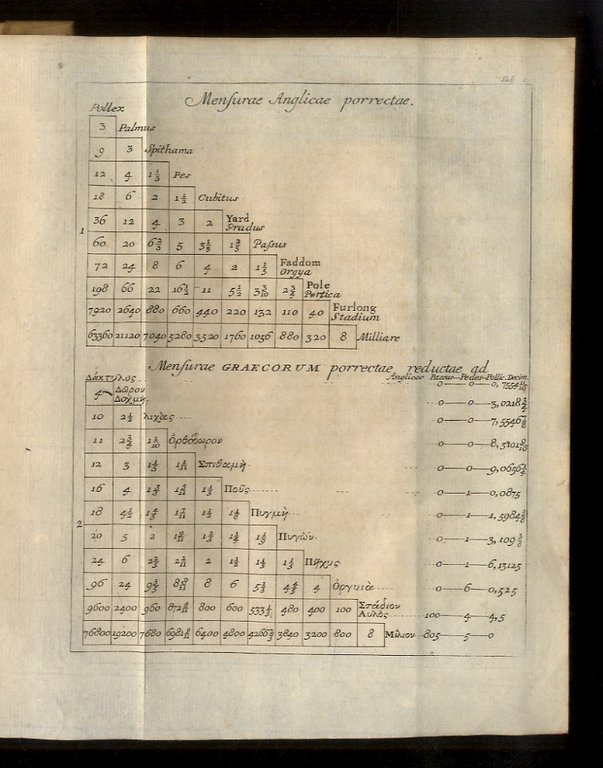 Tab. 1
Mensurae Anglicae porrectae.
Pollex
3 Palmus
9 3 Spithama
12 4 1 1/3 Pes
18 6 2 1 1/2 Cubitus
1
36 12 4 3 2 Yard Gradus
60 20 6 2/3 5 3 1/3 1 2/3 Passus
72 24 8 6 4 2 1 1/5 Faddom Orgya
198 66 22 16 1/2 11 5 1/2 3 3/10 2 3/4 Pole Pertica
7920 2640 880 660 440 220 132 110 40 Furlong Stadium
63360 21120 7040 5280 3520 1760 1056 880 320 8 Milliare
Mensurae GRAECORUM porrectae reductae ad
Δάκτυλος. Anglicos Passus Pedes Pollic. Decim.
4 Δῶρον Δοχμή 0 0 3,0218 3/4
10 2 1/2 Λιχὰς 0 0 7,5546
11 2 3/4 1 1/10 Ὀρθόδωρον 0 0 8,3101
12 3 1 1/5 1 1/11 Σπιθαμὴ 0 0 9,0656 1/4
16 4 1 3/5 1 5/11 1 1/3 Ποῦς 0 1 0,0875
18 4 1/2 1 4/5 1 7/11 1 1/2 1 1/8 Πυγμὴ 0 1 1,5984
2
20 5 2 1 9/11 1 2/3 1 1/4 1 1/9 Πυγὼν 0 1 3,109
24 6 2 2/5 2 2/11 2 1 1/2 1 1/3 1 1/5 Πῆχυς 0 1 6,13125
96 24 9 3/5 8 8/11 8 6 5 1/3 4 4/5 4 Ὀργυιὰ 0 6 0,525
9600 2400 960 872 8/11 800 600 533 1/3 480 400 100 Στάδιον Αὐλὸς 100 4 4,5
76800 19200 7680 6981 9/11 6400 4800 4266 2/3 3840 3200 800 8 Μίλιον 805 5 0